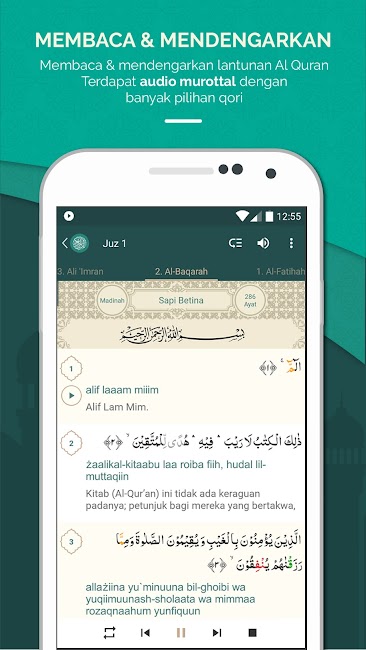 MEMBACA & MENDENGARKAN
Membaca & mendengarkan lantunan Al Quran
Terdapat audio murottal dengan
banyak pilihan qori
12:55
Juz 1
3. Ali 'Imran
2. Al-Baqarah
1. Al-Fatihah
Madinah
Sapi Betina
286
Ayat
بِسْمِ اللَّهِ الرَّحْمَٰنِ الرَّحِيمِ
1
الٓمّٓ ۚ ﴿١﴾
alif laaam miiim
Alif Lam Mim.
2
ذٰلِكَ الْكِتٰبُ لَا رَيْبَ ۛ فِيْهِ ۛ هُدًى لِّلْمُتَّقِيْنَ ﴿٢﴾
żaalikal-kitaabu laa roiba fiih, hudal lil-
muttaqiin
Kitab (Al-Qur'an) ini tidak ada keraguan
padanya; petunjuk bagi mereka yang bertakwa,
3
الَّذِيْنَ يُؤْمِنُوْنَ بِالْغَيْبِ وَيُقِيْمُوْنَ الصَّلٰوةَ وَمِمَّا
رَزَقْنٰهُمْ يُنْفِقُوْنَ ﴿٣﴾
allażiina yu`minuuna bil-ghoibi wa
yuqiimuunash-sholaata wa mimmaa
rozaqnaahum yunfiquun